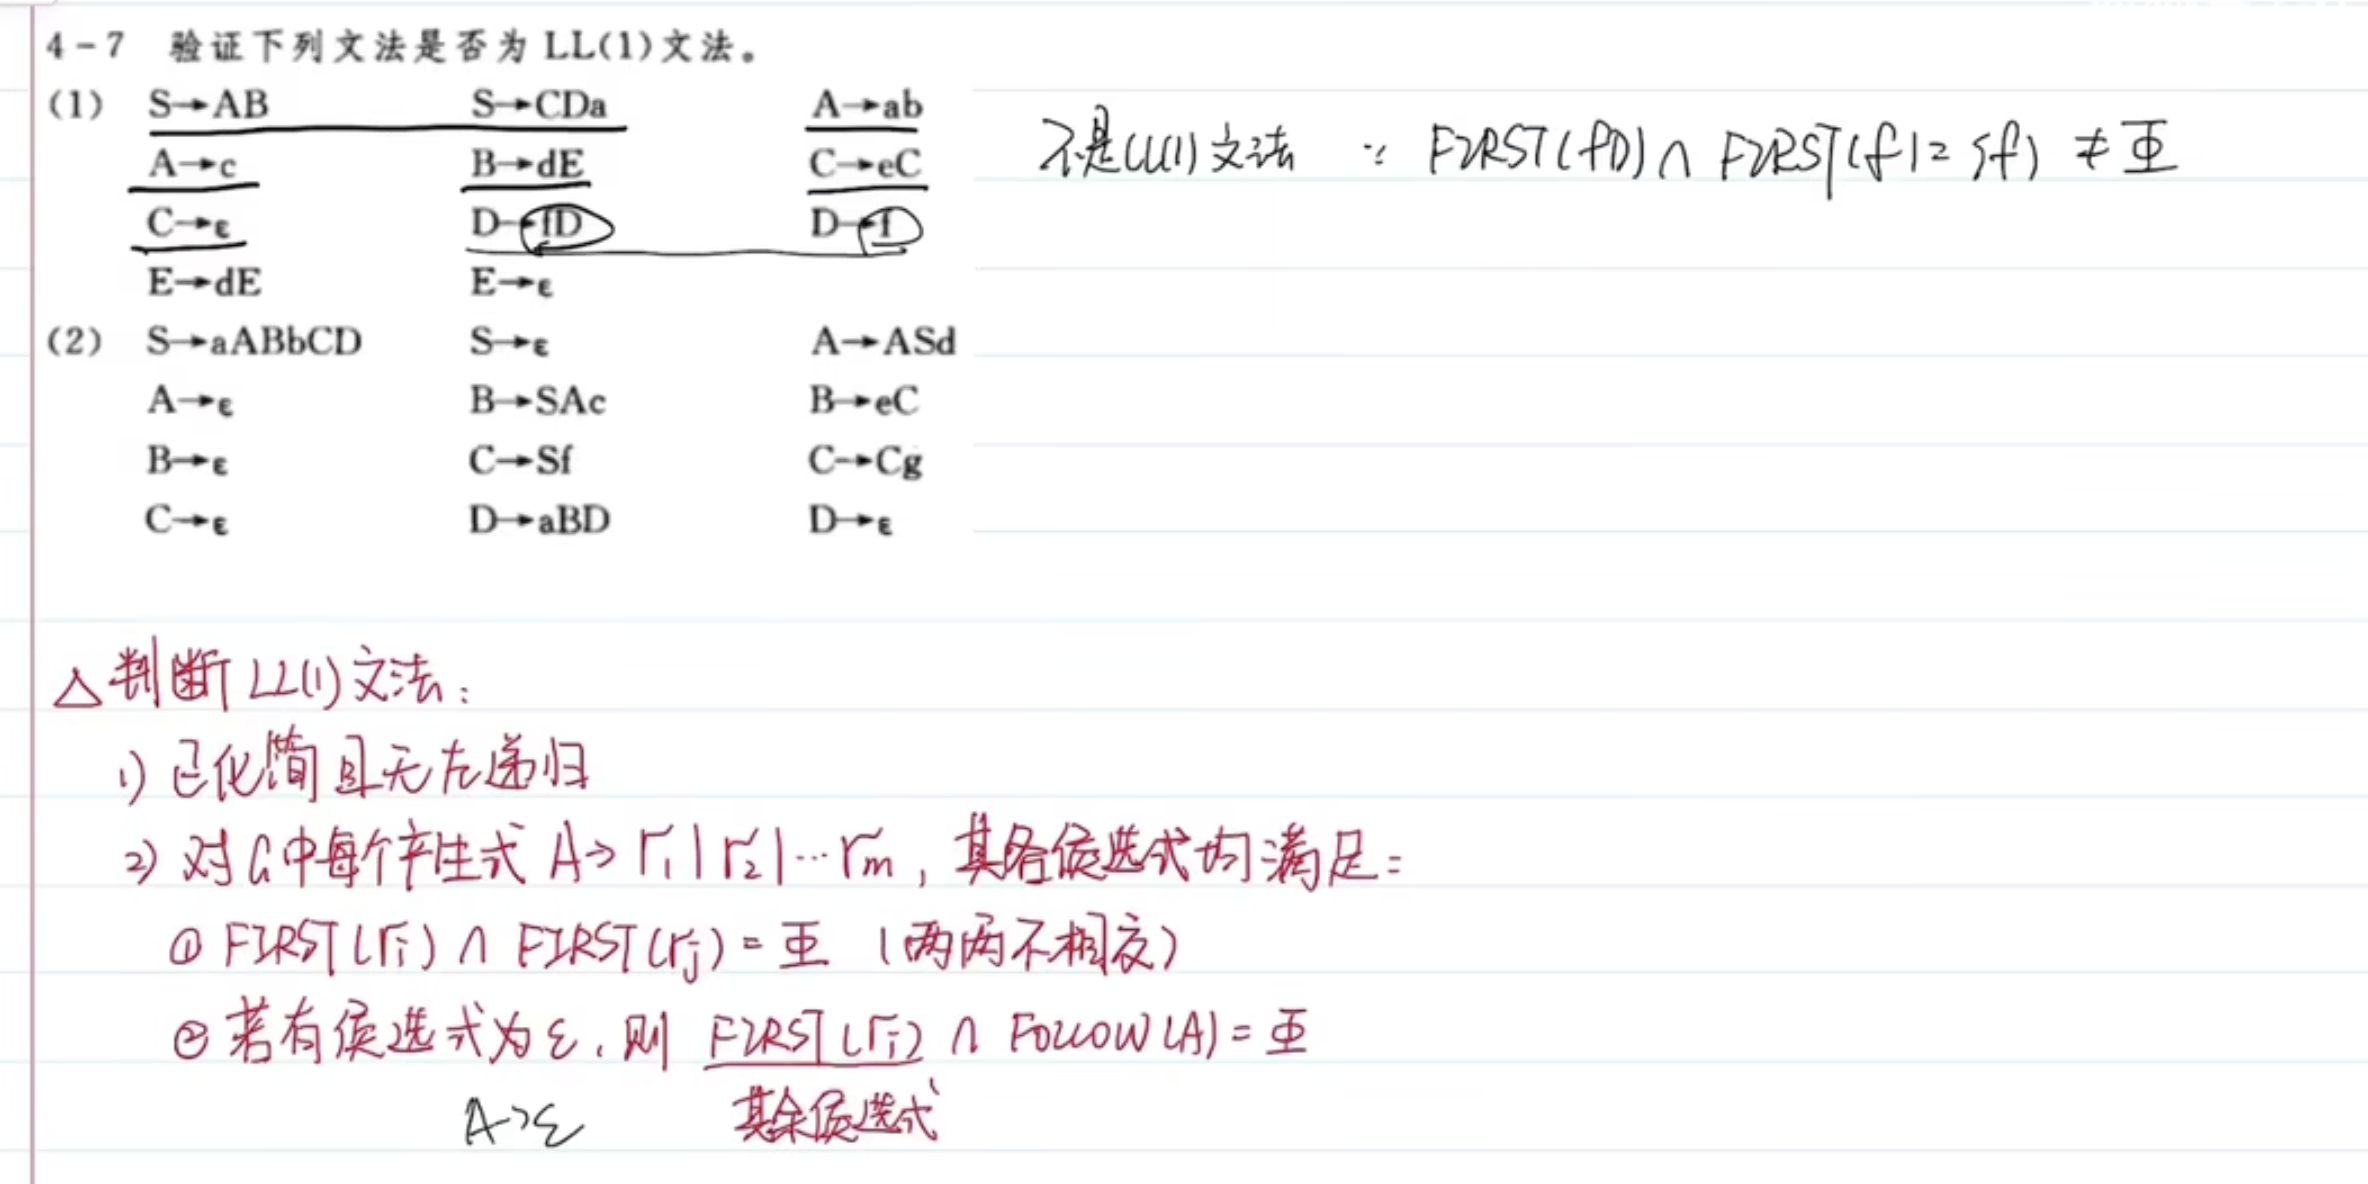 4-7 验证下列文法是否为 LL(1)文法。
(1) S→AB S→CDa A→ab
A→c B→dE C→eC
C→ε D→fD D→f
E→dE E→ε
不是LL(1)文法 ∵ FIRST(fD)∩FIRST(f)={f}≠Φ
(2) S→aABbCD S→ε A→ASd
A→ε B→SAc B→eC
B→ε C→Sf C→Cg
C→ε D→aBD D→ε
△判断LL(1)文法:
1) 已化简且无左递归
2) 对G中每个产生式 A→r₁|r₂|…rₘ, 其各侯选式均满足:
① FIRST(rᵢ)∩FIRST(rⱼ)=Φ (两两不相交)
② 若有侯选式为ε,则 FIRST(rᵢ)∩FOLLOW(A)=Φ
A→ε 其余侯选式